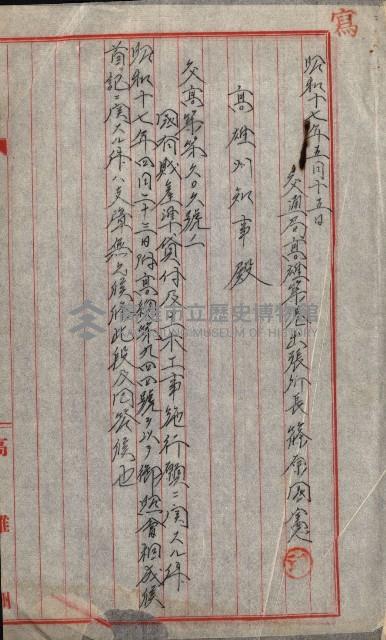 寫
昭和十七年五月十五日
交通局高雄築港出張所長 篠原國憲
高雄州知事殿
交高築第六〇六號ノ二
國有財産準貸付及土木工事施行願ニ関スル件
昭和十七年四月二十三日附高網第九四四號ヲ以テ御照會相成候
首記ニ関スル件ハ支障無之候條此段及回答候也
高雄州
高雄市立歷史博物館
MUSEUM OF HISTORY